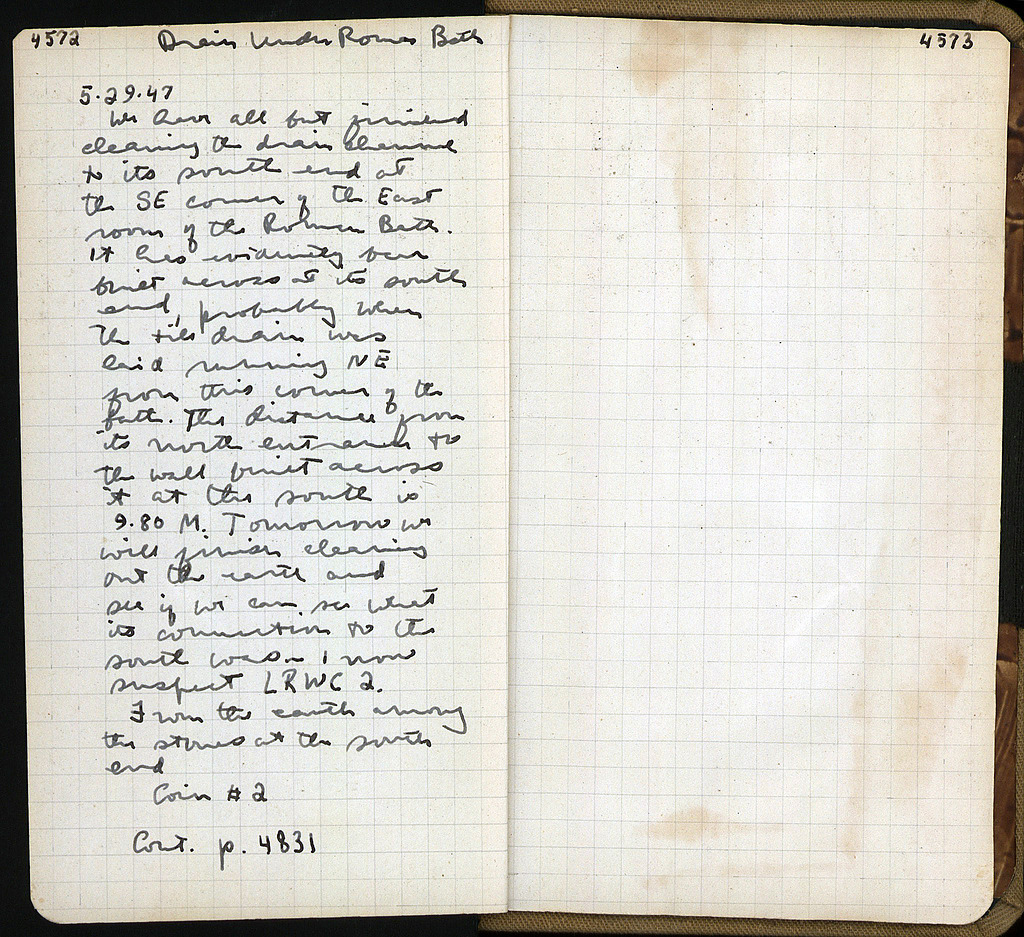 4572 Drain Under Roman Bath
5.29.47
We have all but finished
cleaning the drain channel
to its south end at
the SE corner of the East
room of the Roman Bath.
It has evidently been
built across at its south
end, probably when
the tile drain was
laid running NE
from this corner of the
bath. The distance from
its north entrance to
the wall built across
it at the south is
9.80 M. Tomorrow we
will finish cleaning
out the earth and
see if we can see what
its connection to the
south was. I now
suspect LRWC 2.
From the earth among
the stones at the south
end
Coin # 2
Cont. p. 4831
4573